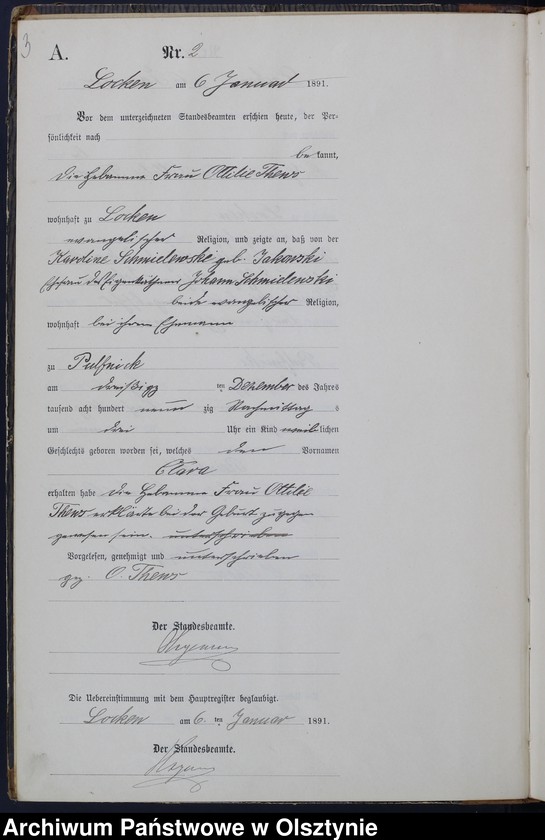 3
A. Nr. 2
Locken am 6 Januar 1891.
Vor dem unterzeichneten Standesbeamten erschien heute, der Per-
sönlichkeit nach
be kannt,
die Hebamme Frau Ottilie Thews
wohnhaft zu Locken
evangelischer Religion, und zeigte an, daß von der
Karoline Schmielewski geb. Jakovski
Ehefrau des Eigenkäthners Johann Schmielewski
beide evangelischer Religion,
wohnhaft bei ihrem Ehemanne
zu Pulfnick
am dreißigg ten Dezember des Jahres
tausend acht hundert neun zig Nachmittag s
um drei Uhr ein Kind weiblichen
Geschlechts geboren worden sei, welches den Vornamen
Clara
erhalten habe die Hebamme Frau Ottilie
Thews erklärte bei der Geburt zugegen
gewesen sein. unterschrieben
Vorgelesen, genehmigt und unterschrieben
gez. O. Thews
Der Standesbeamte.
Die Uebereinstimmung mit dem Hauptregister beglaubigt.
Locken am 6. ten Januar 1891.
Der Standesbeamte.
Archiwum Państwowe w Olsztynie